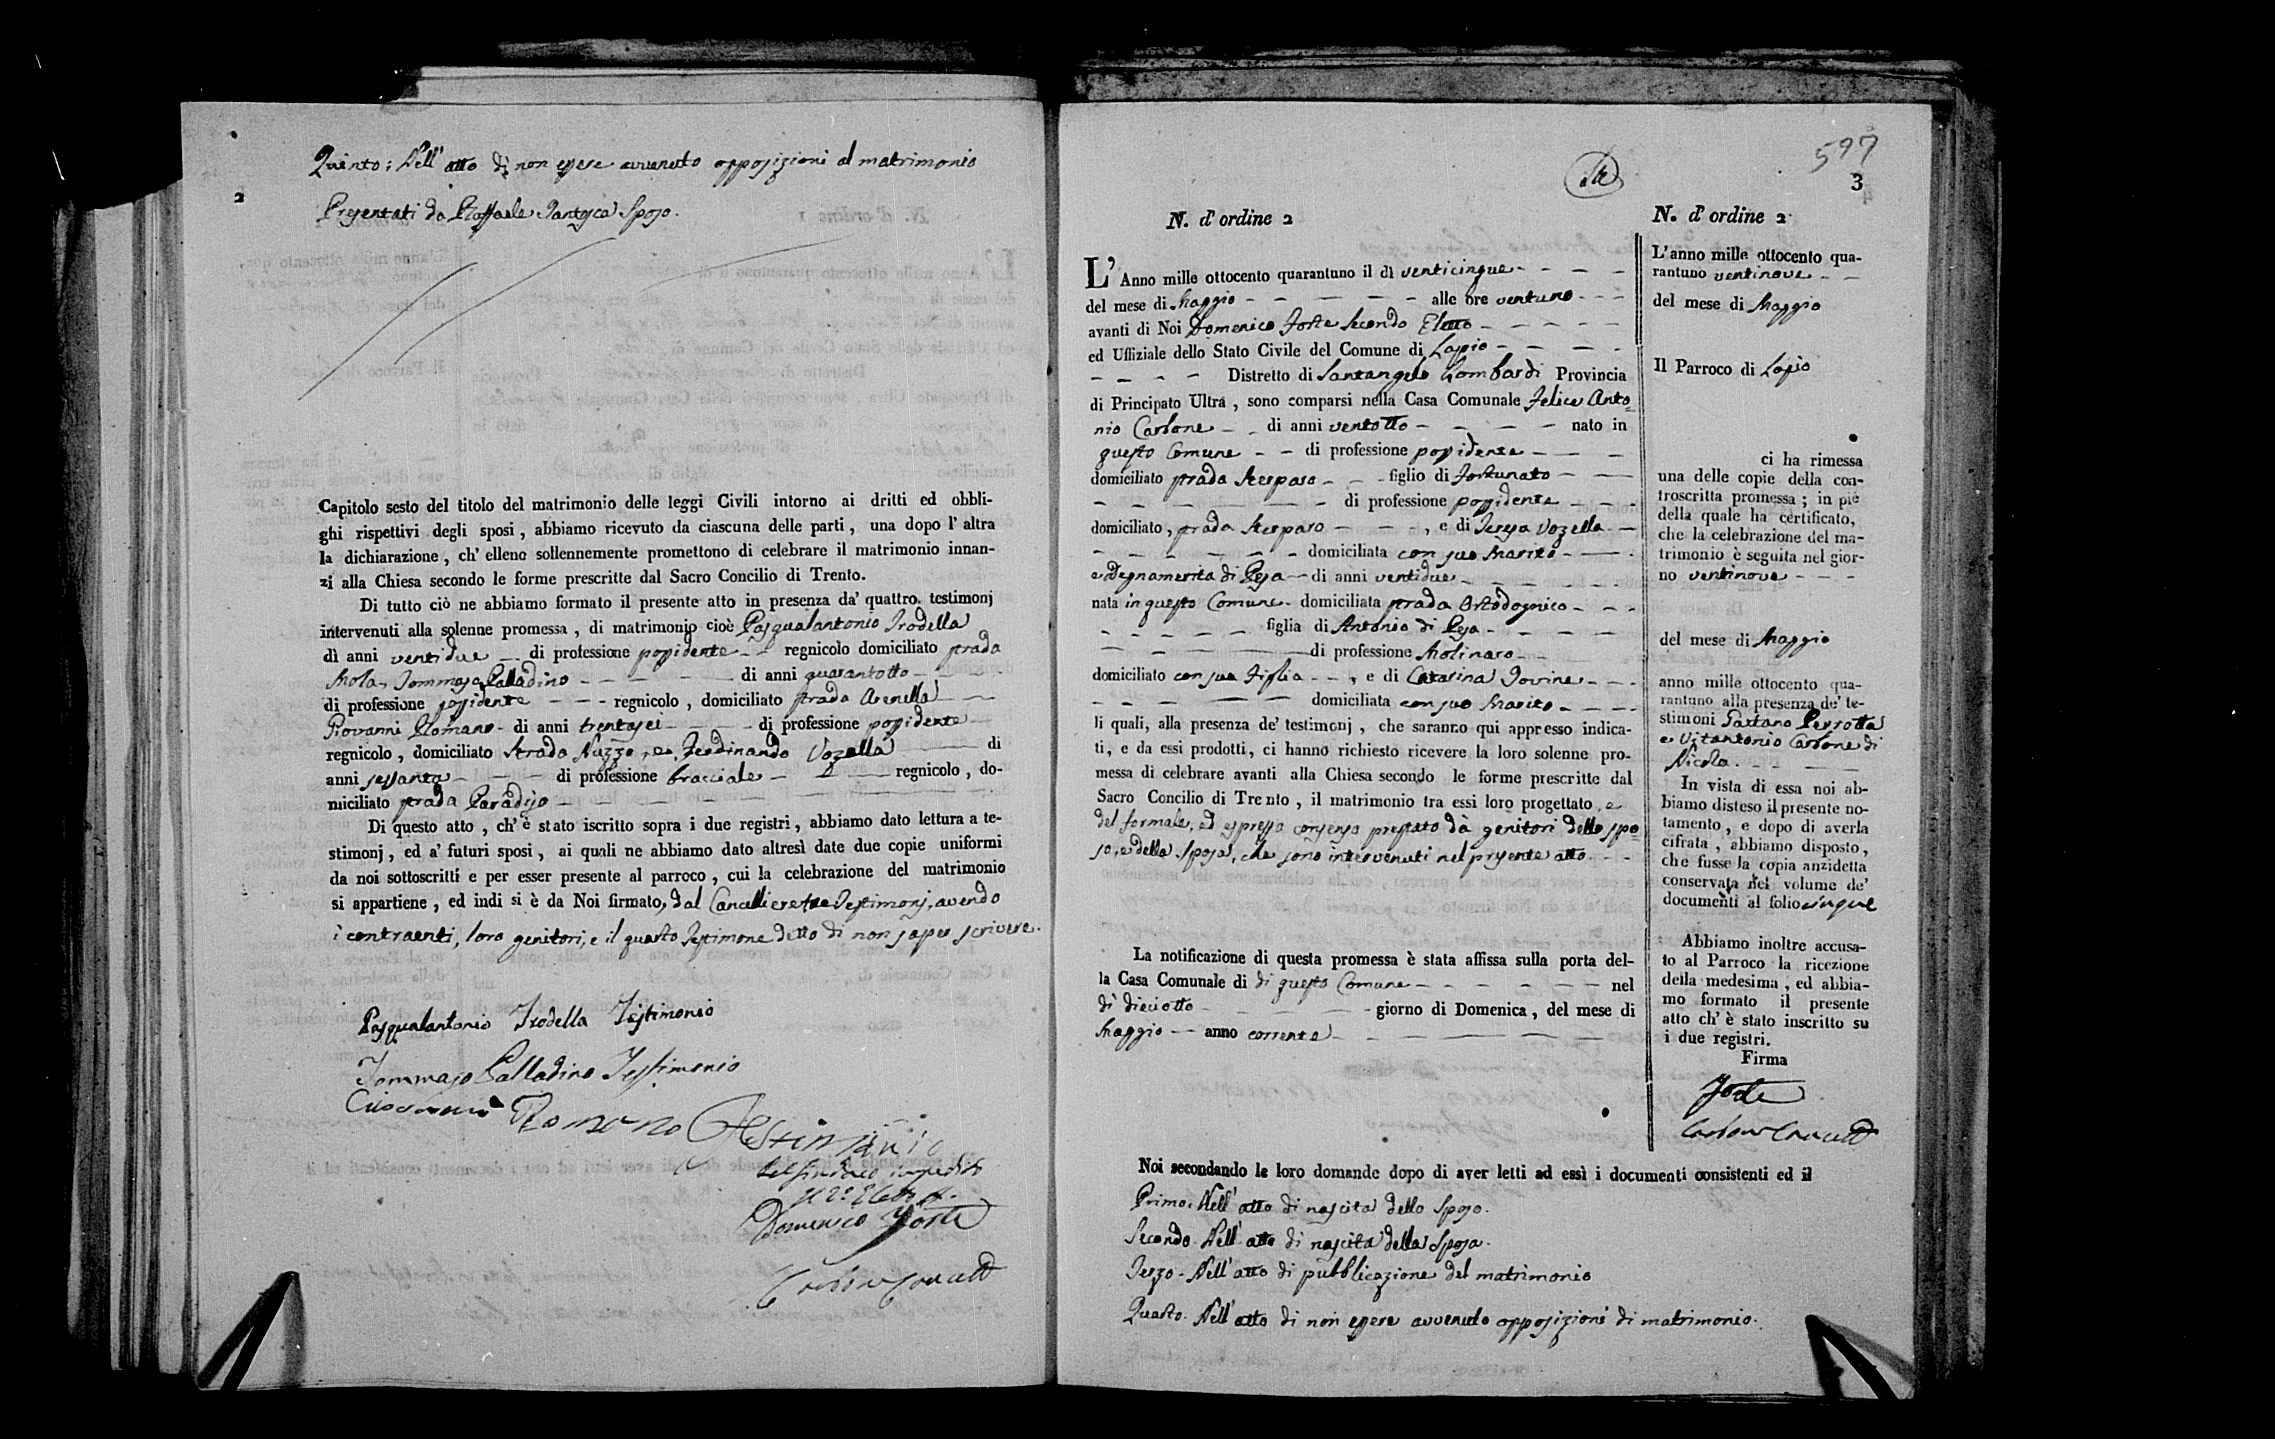 2
Quinto: Nell' atto di non essere avvenuto opposizioni al matrimonio
Presentati da Raffaele Santosca Sposo.
Capitolo sesto del titolo del matrimonio delle leggi Civili intorno ai dritti ed obbli-
ghi rispettivi degli sposi, abbiamo ricevuto da ciascuna delle parti, una dopo l' altra
la dichiarazione, ch' elleno sollennemente promettono di celebrare il matrimonio innan-
zi alla Chiesa secondo le forme prescritte dal Sacro Concilio di Trento.
Di tutto ciò ne abbiamo formato il presente atto in presenza da' quattro testimonj
intervenuti alla solenne promessa, di matrimonio cioè Pasqualantonio Trodella
di anni ventidue di professione possidente regnicolo domiciliato strada
Mola, Tommaso Palladino di anni quarantotto
di professione possidente regnicolo, domiciliato strada Arenella
Giovanni Romano di anni trentasei di professione possidente
regnicolo, domiciliato Strada Nuzzo, e Ferdinando Vozella di
anni sessanta di professione bracciale regnicolo, do-
miciliato strada Paradiso
Di questo atto, ch' è stato iscritto sopra i due registri, abbiamo dato lettura a te-
stimonj, ed a' futuri sposi, ai quali ne abbiamo dato altresì date due copie uniformi
da noi sottoscritti e per esser presente al parroco, cui la celebrazione del matrimonio
si appartiene, ed indi si è da Noi firmato, dal Cancelliere tre Testimonj, avendo
i contraenti, loro genitori, e il quarto Testimone detto di non saper scrivere.
Pasqualantonio Trodella Testimonio
Tommaso Palladino Testimonio
Giovanni Romano Testimonio
Del Sindaco impedito
Il 2º Eletto
Domenico Forte
Carbone Cancell
597
3
N. d' ordine 2
L' Anno mille ottocento quarantuno il dì venticinque
del mese di Maggio alle ore ventuno
avanti di Noi Domenico Forte Secondo Eletto
ed Uffiziale dello Stato Civile del Comune di Lapio
Distretto di Santangelo Lombardi Provincia
di Principato Ultra, sono comparsi nella Casa Comunale Felice Anto=
nio Carbone di anni ventotto nato in
questo Comune di professione possidente
domiciliato strada figlio di Fortunato
di professione possidente
domiciliato, strada e di Teresa Vozella
domiciliata con suo Marito
e Degnamerita di Pesa di anni ventidue
nata in questo Comune domiciliata strada Ortodognico
figlia di Antonio di Pesa
di professione Molinaro
domiciliato con sua Figlia, e di Catarina Iovine
domiciliata con suo Marito
li quali, alla presenza de' testimonj, che saranno qui appresso indica-
ti, e da essi prodotti, ci hanno richiesto ricevere la loro solenne pro-
messa di celebrare avanti alla Chiesa secondo le forme prescritte dal
Sacro Concilio di Trento, il matrimonio tra essi loro progettato, e
del formale, ed espresso consenso prestato dà genitori dello spo=
so, e della sposa, che sono intervenuti nel presente atto
La notificazione di questa promessa è stata affissa sulla porta del-
la Casa Comunale di di questo Comune nel
dì dieciotto giorno di Domenica, del mese di
Maggio anno corrente
N. d' ordine 2
L' anno mille ottocento qua-
rantuno ventinove
del mese di Maggio
Il Parroco di Lapio
ci ha rimessa
una delle copie della con-
troscritta promessa; in piè
della quale ha certificato,
che la celebrazione del ma-
trimonio è seguita nel gior-
no ventinove
del mese di Maggio
anno mille ottocento qua-
rantuno alla presenza de' te-
stimoni Gaetano Perrotta
e Vitantonio Carbone di
Nicola
In vista di essa noi ab-
biamo disteso il presente no-
tamento, e dopo di averla
cifrata, abbiamo disposto,
che fusse la copia anzidetta
conservata nel volume de'
documenti al folio cinque
Abbiamo inoltre accusa-
to al Parroco la ricezione
della medesima, ed abbia-
mo formato il presente
atto ch' è stato inscritto su
i due registri.
Firma
Forte
Carbone Cancell
Noi secondando le loro domande dopo di aver letti ad essi i documenti consistenti ed il
Primo. Nell' atto di nascita dello Sposo.
Secondo. Nell' atto di nascita della Sposa.
Terzo. Nell' atto di pubblicazione del matrimonio
Quarto. Nell' atto di non essere avvenuto opposizioni di matrimonio.